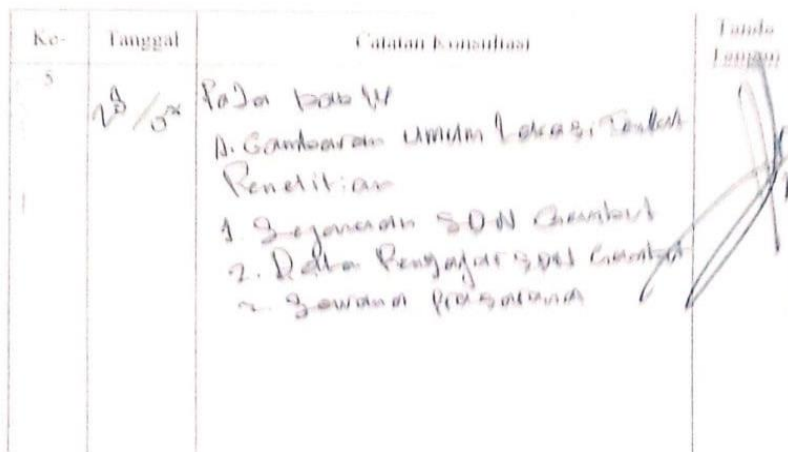 Ke- Tanggal Catatan Konsultasi Tanda Tangan
5
Pada bab IV
A. Gambaran Umum Lokasi
Penelitian
1. Sejarah SDN Gambut
2. Data Pengajar SDN Gambut
Sarana Prasarana